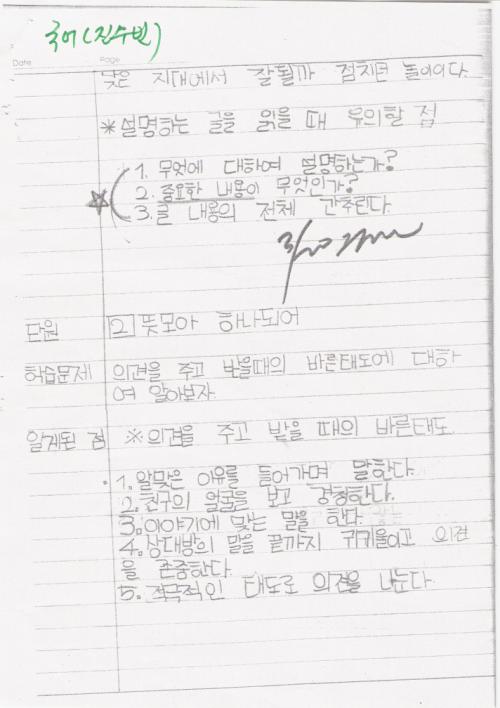 국어(진수빈)
Date
Page
낮은 지대에서 잘될까 점치던 놀이이다.
*설명하는 글을 읽을 때 유의할 점
1. 무엇에 대하여 설명하는가?
2. 중요한 내용이 무엇인가?
3. 글 내용의 전체 간추린다.
단원 2 뜻모아 하나되어
학습문제 의견을 주고 받을때의 바른태도에 대하
여 알아보자.
알게된 점 ※의견을 주고 받을 때의 바른태도.
1. 알맞은 이유를 들어가며 말한다.
2. 친구의 얼굴을 보고 경청한다.
3. 이야기에 맞는 말을 한다.
4. 상대방의 말을 끝까지 귀기울이고 의견
을 존중한다.
5. 적극적인 태도로 의견을 나눈다.